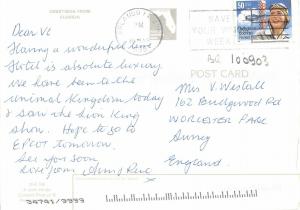 GREETINGS FROM
FLORIDA
Dear Vi
Having a wonderful time
Hotel is absolute luxury.
We have been to the
Animal Kingdom today
& saw the Lion King
show. Hope to go to
EPCOT tomorrow.
See you soon
Love from
50
POST CARD
Mrs V. Westall
162
WORCESTER PARK
Surrey
England.
34791/9999